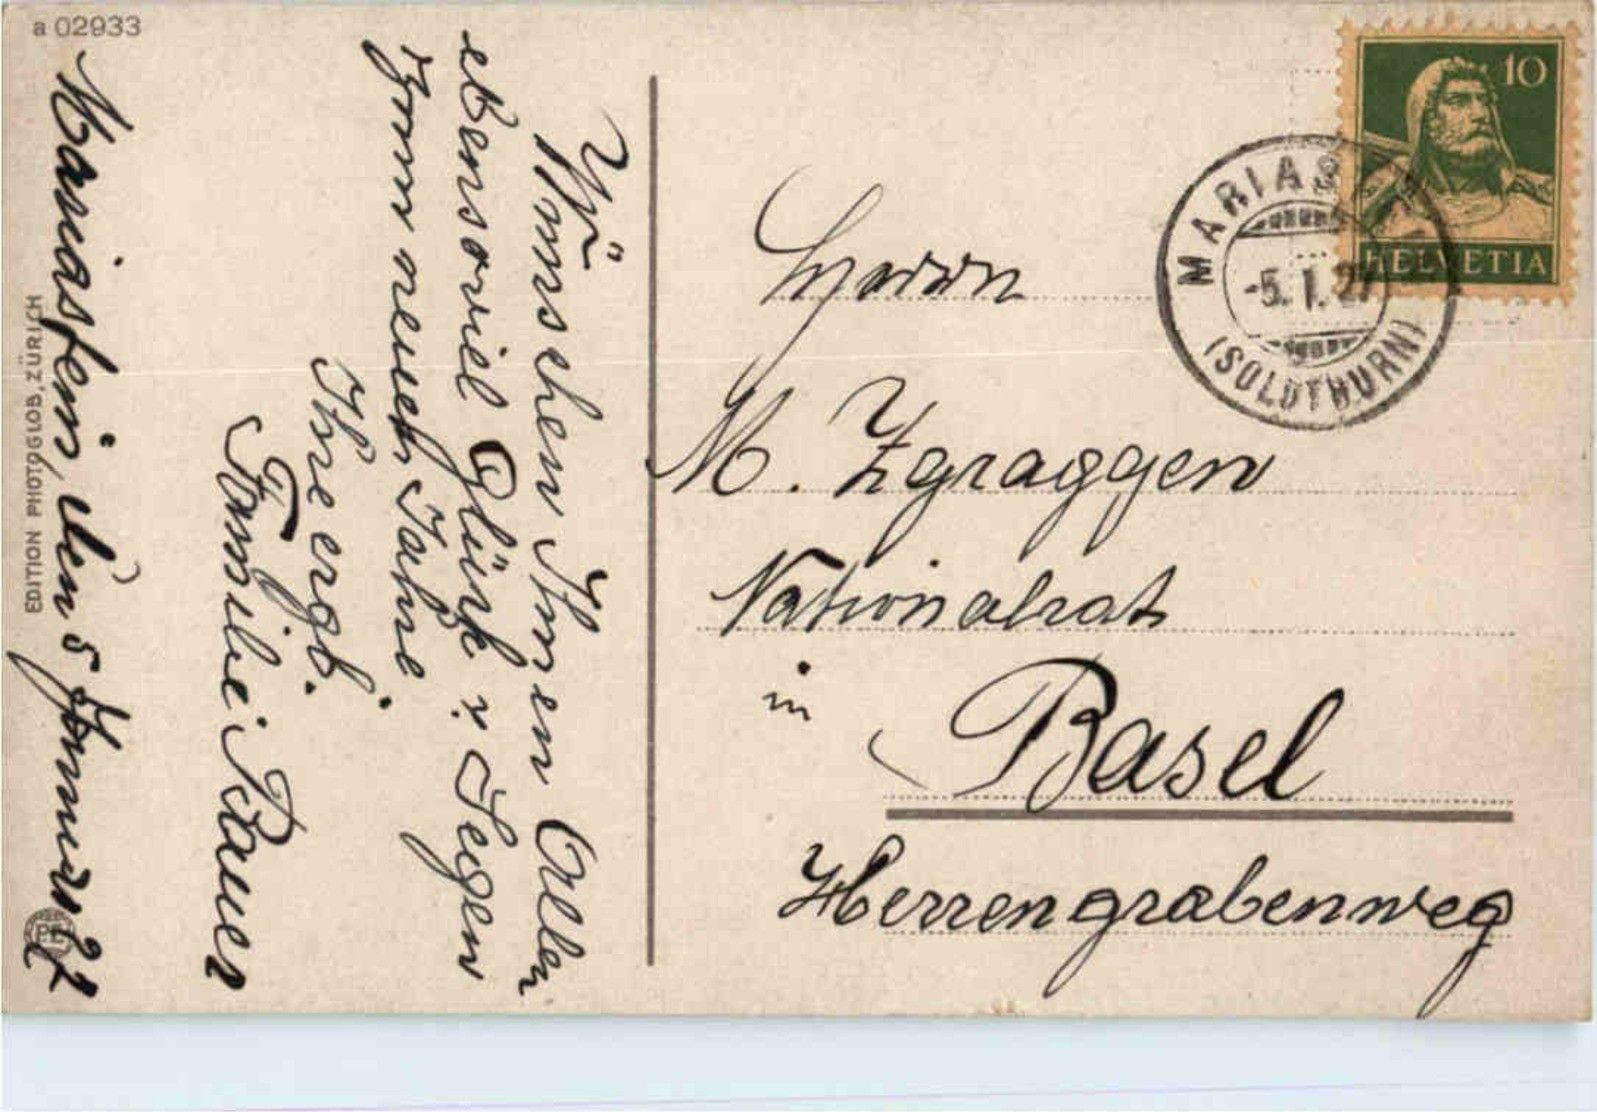 a 02933
Mariastein, den 5 Januar 27
Wir
Wünschen Ihnen Allen
ebensoviel Glück u. Segen
zum neuen Jahre.
Ihre ergb.
Familie
EDITION PHOTOGLOB, ZÜRICH
10
HELVETIA
MARIAS
-5. I. 27
(SOLOTHURN)
Herrn
M. Zgraggen
Nationalrat
in
Basel
Herrengrabenweg